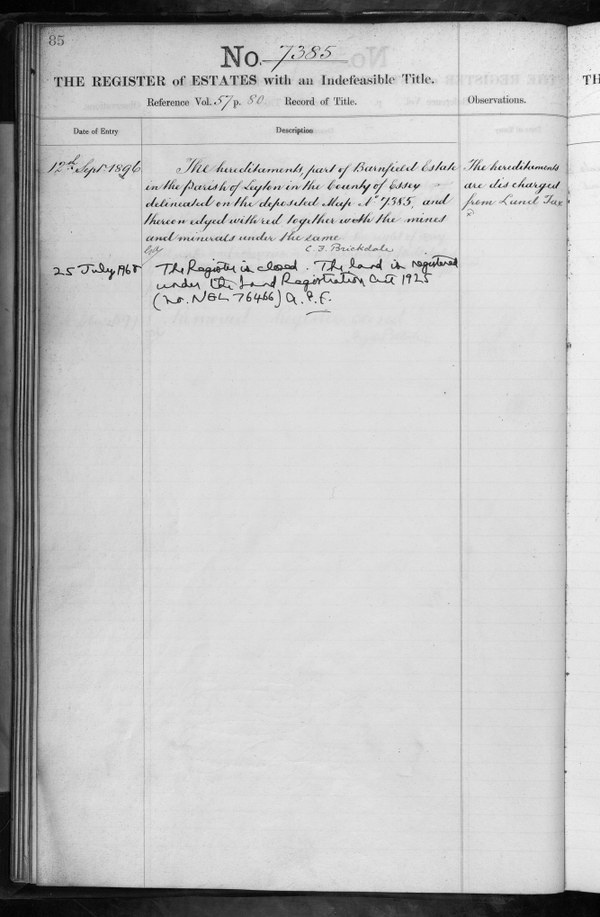 85
No. 7385
THE REGISTER of ESTATES with an Indefeasible Title.
Reference Vol. 57 p. 80 Record of Title.
Observations.
Date of Entry
Description
12th Sept 1896
The hereditaments part of Barnfield Estate
in the Parish of Leyton in the County of Essex
delineated on the deposited Map No 7385, and
thereon edged with red together with the mines
and minerals under the same
C F Brickdale
The hereditaments
are discharged
from Land Tax
25 July 1968
The Register is closed. The land is registered
under the Land Registration Act 1925
(No. NGL 76466) A.P.F.
TH